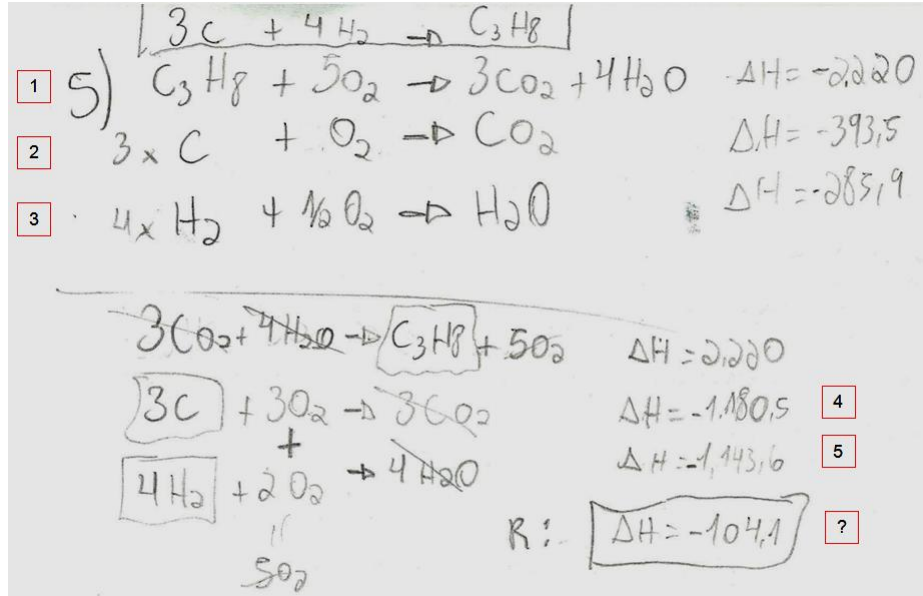 3C + 4H₂ → C₃H₈
1 5) C₃H₈ + 5O₂ → 3CO₂ + 4H₂O ΔH = -2.220
2 3 x C + O₂ → CO₂ ΔH = -393,5
3 4 x H₂ + ½O₂ → H₂O ΔH = -285,9
3CO₂ + 4H₂O → C₃H₈ + 5O₂ ΔH = 2,220
3C + 3O₂ → 3CO₂ ΔH = -1.180,5 4
+
4H₂ + 2O₂ → 4H₂O ΔH = -1,143,6 5
R: ΔH = -104,1 ?
5O₂